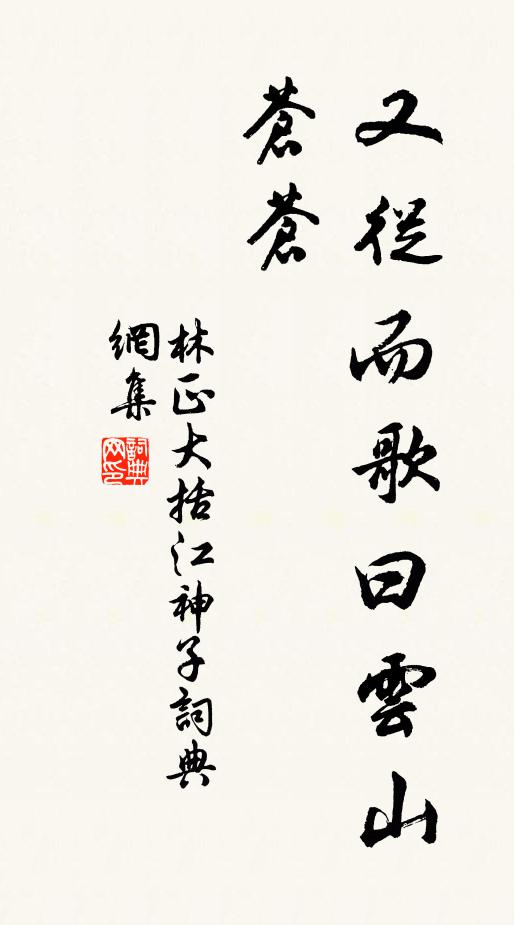 又從而歌曰雲山
蒼蒼
林正大括江神子詞典
網集
詞典網印